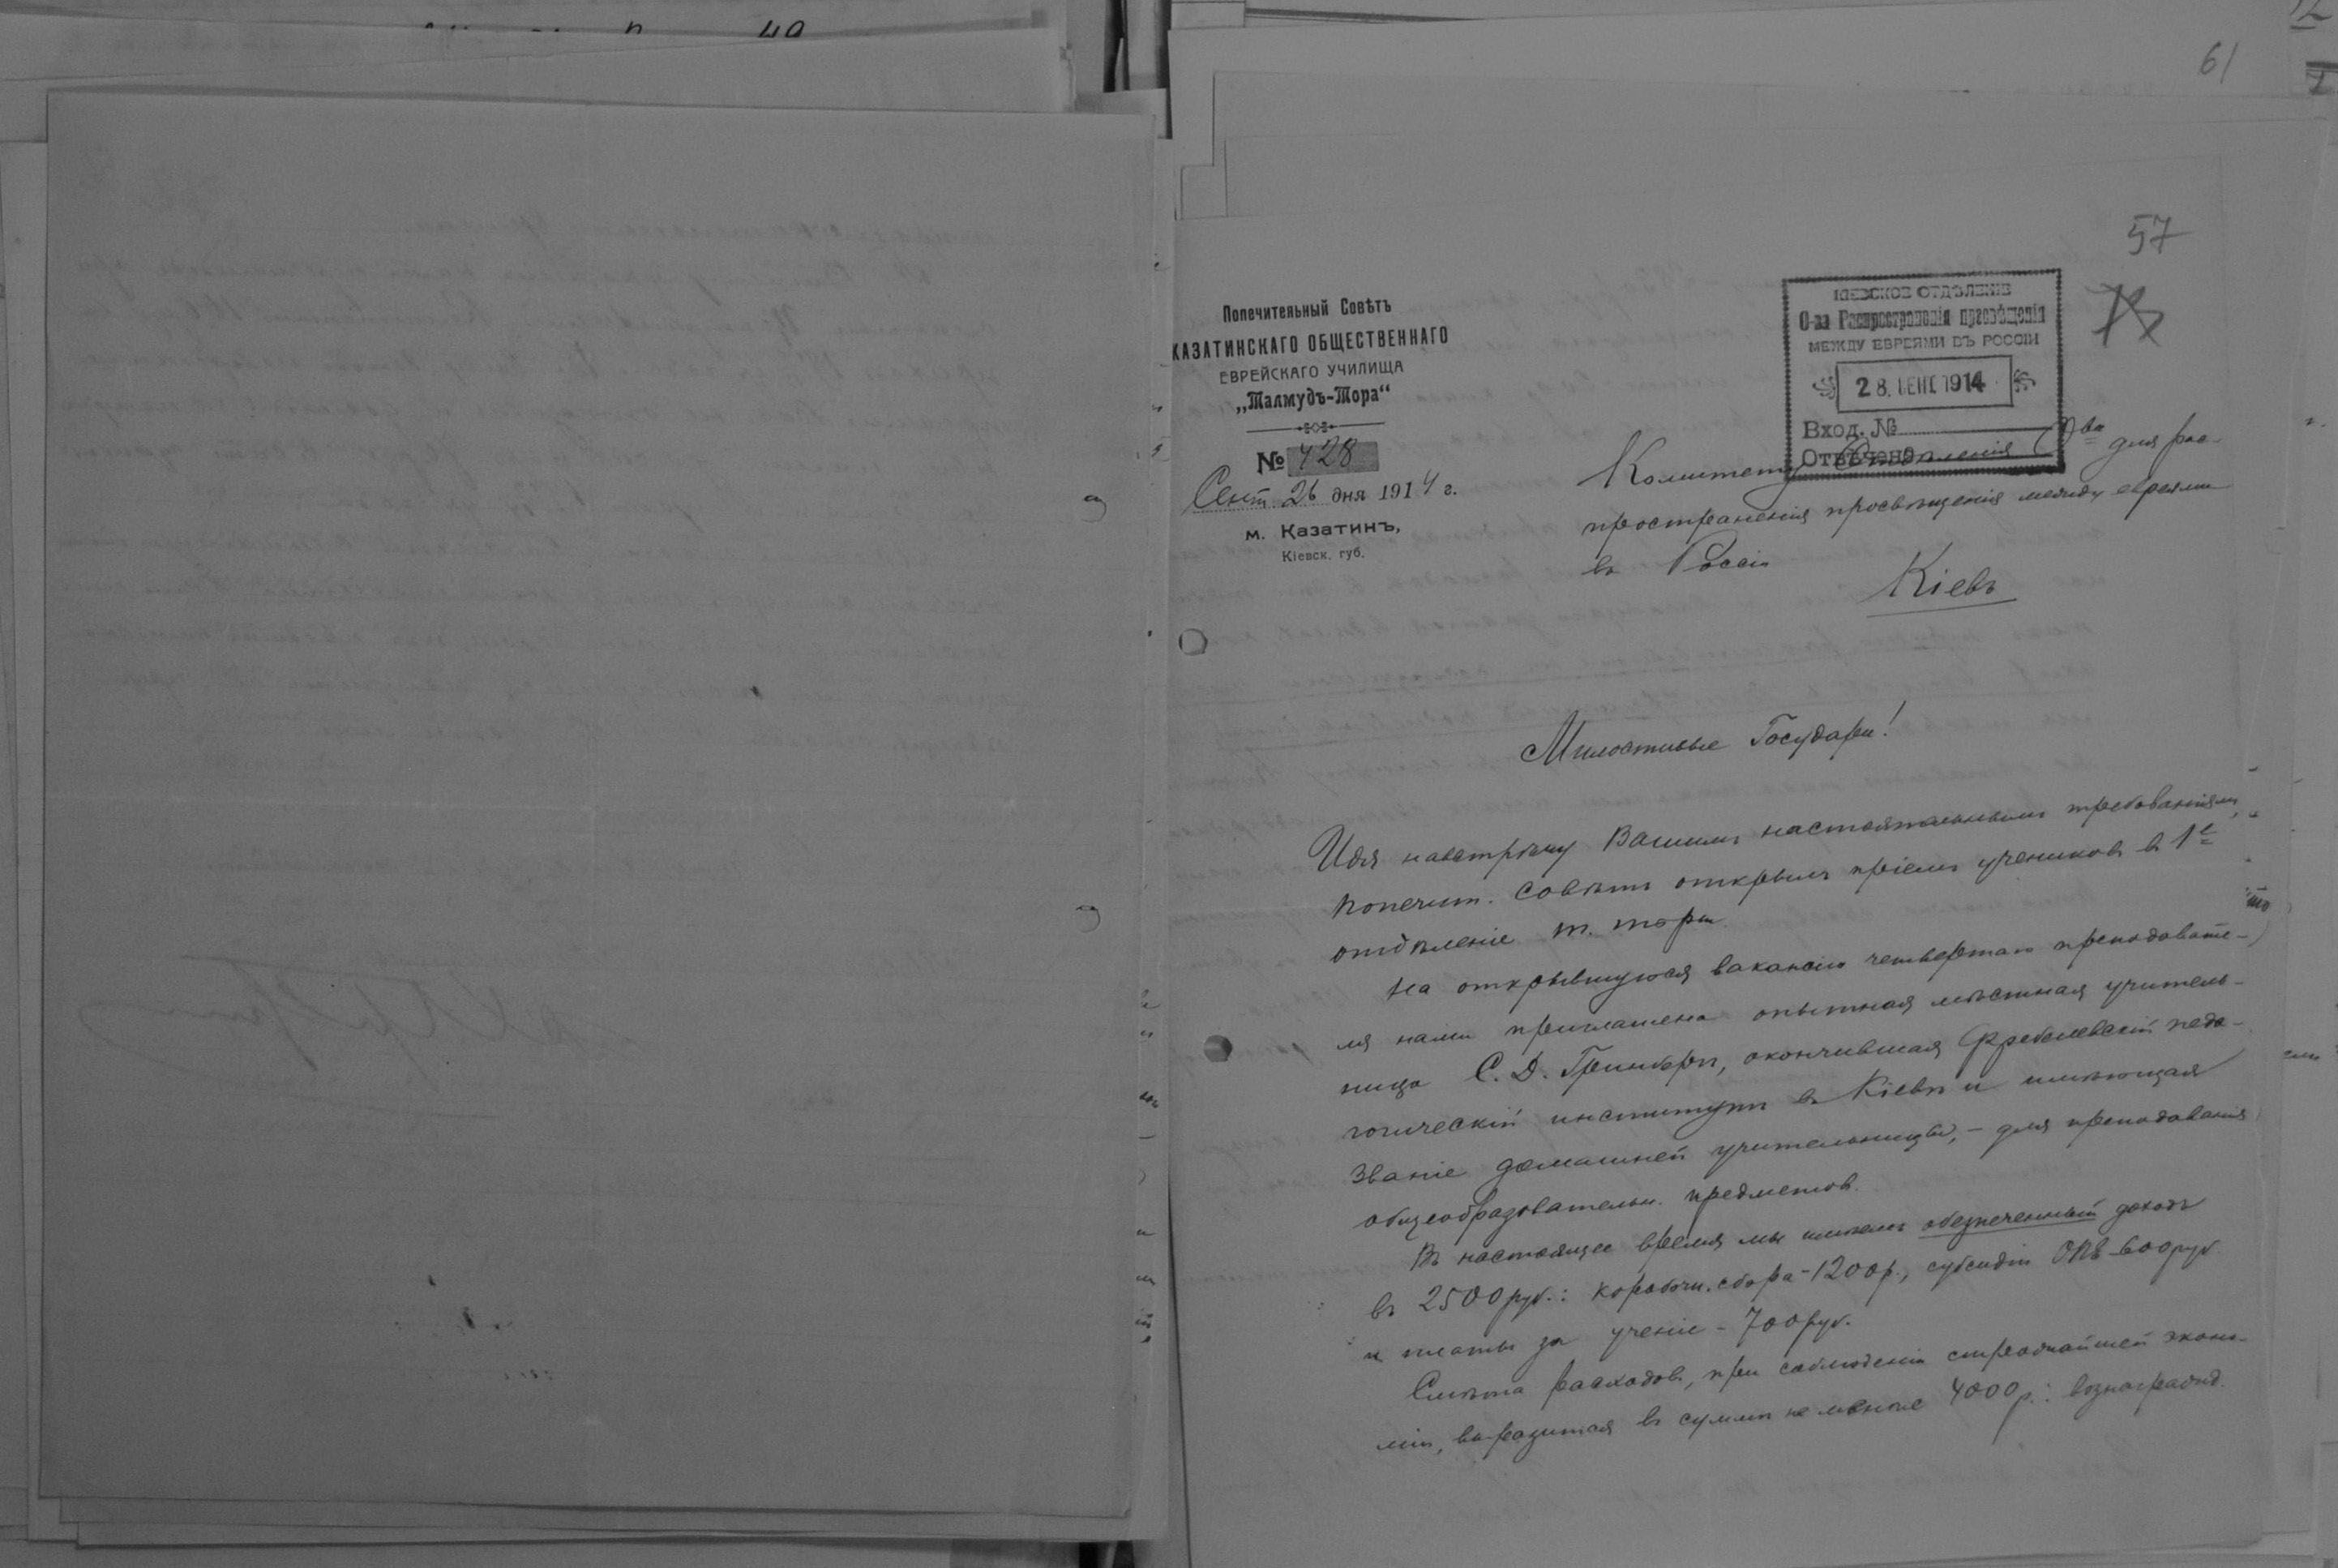 61
57
Попечительный Совѣтъ
КАЗАТИНСКАГО ОБЩЕСТВЕННАГО
ЕВРЕЙСКАГО УЧИЛИЩА
„Талмудъ-Тора“
№ 428
Сент 26 дня 1914 г.
м. Казатинъ,
Кіевск. губ.
КІЕВСКОЕ ОТДѢЛЕНІЕ
О-ва Распространенія просвѣщенія
МЕЖДУ ЕВРЕЯМИ ВЪ РОССІИ
28. СЕНТ 1914
Вход. №
Отвѣчено
Комитету Отдѣленія О-ва для рас-
пространенія просвѣщенія между евреями
въ Россіи
Кіевъ
Милостивые Государи!
Идя навстрѣчу Вашимъ настоятельнымъ требованіямъ,
попечит. совѣтъ открылъ пріемъ учениковъ въ 1е
отдѣленіе т. торы.
На открывшуюся вакансію четвертаго преподавате-
ля нами приглашена опытная мѣстная учитель-
ница С. Д. Гринбергъ, окончившая Фребелевскій педа-
гогическій институтъ въ Кіевѣ и имѣющая
званіе домашней учительницы, - для преподаванія
общеобразовательн. предметовъ.
Въ настоящее время мы имѣемъ обезпеченный доходъ
въ 2500 руб.: коробочн. сбора - 1200 р., субсидіи ОПЕ - 600 руб.
и платы за ученіе - 700 руб.
Смѣта расходовъ, при соблюденіи строжайшей эконо-
міи, выразится въ суммѣ не менѣе 4000 р.: вознагражд.